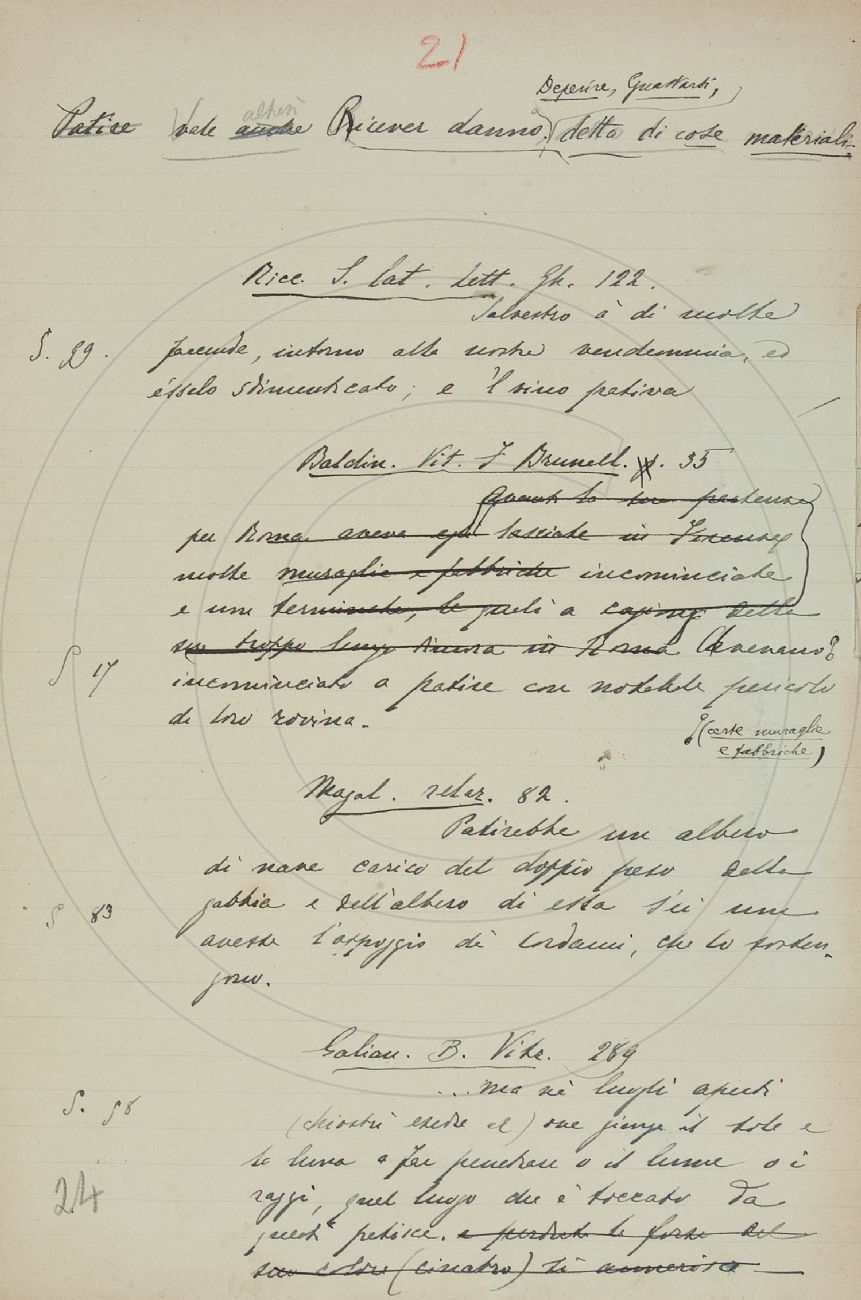 21
Deperire, Guastarsi,
altresì
Patire vale anche Ricever danno, detto di cose materiali.
Ricc. S. Cat. lett. Gh. 122.
Salvestro à di molte
§. 99. faccende, intorno alle nostre vendemmia, ed
éssselo sdimenticato; e 'l vino pativa
Baldin. Vit. F. Brunell. p. 35
Avanti la sua partenza
per Roma aveva egli lasciate in Firenze
molte muraglie e fabbriche incominciate
e non terminate, le quali a cagione della
sua troppo lunga dimora in Roma (Avevano
§ 17 incominciato a patire con notabile pericolo
di loro rovina.
(certe muraglie
e fabbriche)
Magal. relaz. 82.
Patirebbe un albero
di nave carico del doppio peso della
§ 83 gabbia e dell'albero di essa s'ei non
avesse l'appoggio de' cordami, che lo sosten-
gono.
Galian. B. Vitr. 289
...ma nè luoghi aperti
§. 58 (chiostri esedre ec) ove giunge il sole e
la luna a far penetrare o il lume o i
raggi, quel luogo che è toccato da
24
questi patisce. e perdute le forze del
suo colore (cinabro) si annerisce